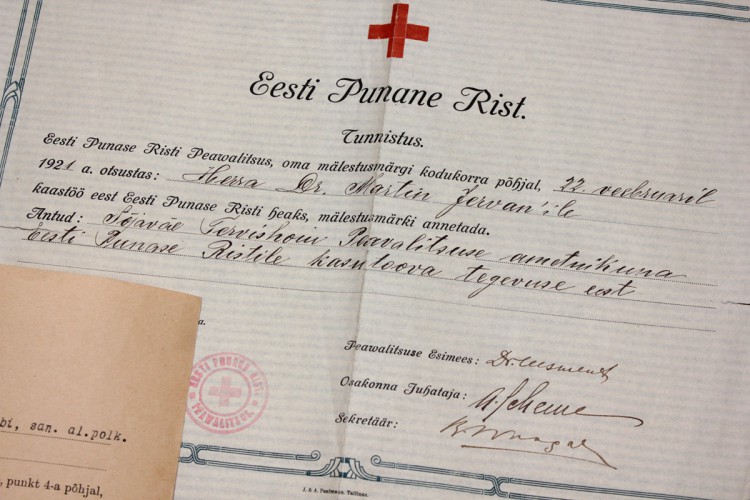 Eesti Punane Rist.
Tunnistus.
Eesti Punase Risti Peawalitsus, oma mälestusmärgi kodukorra põhjal, 22 veebruaril
1921 a. otsustas: Herra Dr. Martin Jervan'ile
kaastöö eest Eesti Punase Risti heaks, mälestusmärki annetada.
Antud: Sõjaväe Tervishoiu Peavalitsuse ametnikuna
Eesti Punase Ristile kasutoova tegevuse eest
a.
Peawalitsuse Esimees:
Osakonna Juhataja:
Sekretäär:
EESTI PUNASE RISTI
PEAWALITSUS
bi, san. al.polk.
, punkt 4-a põhjal,
J. & A. Paalmann, Tallinn.